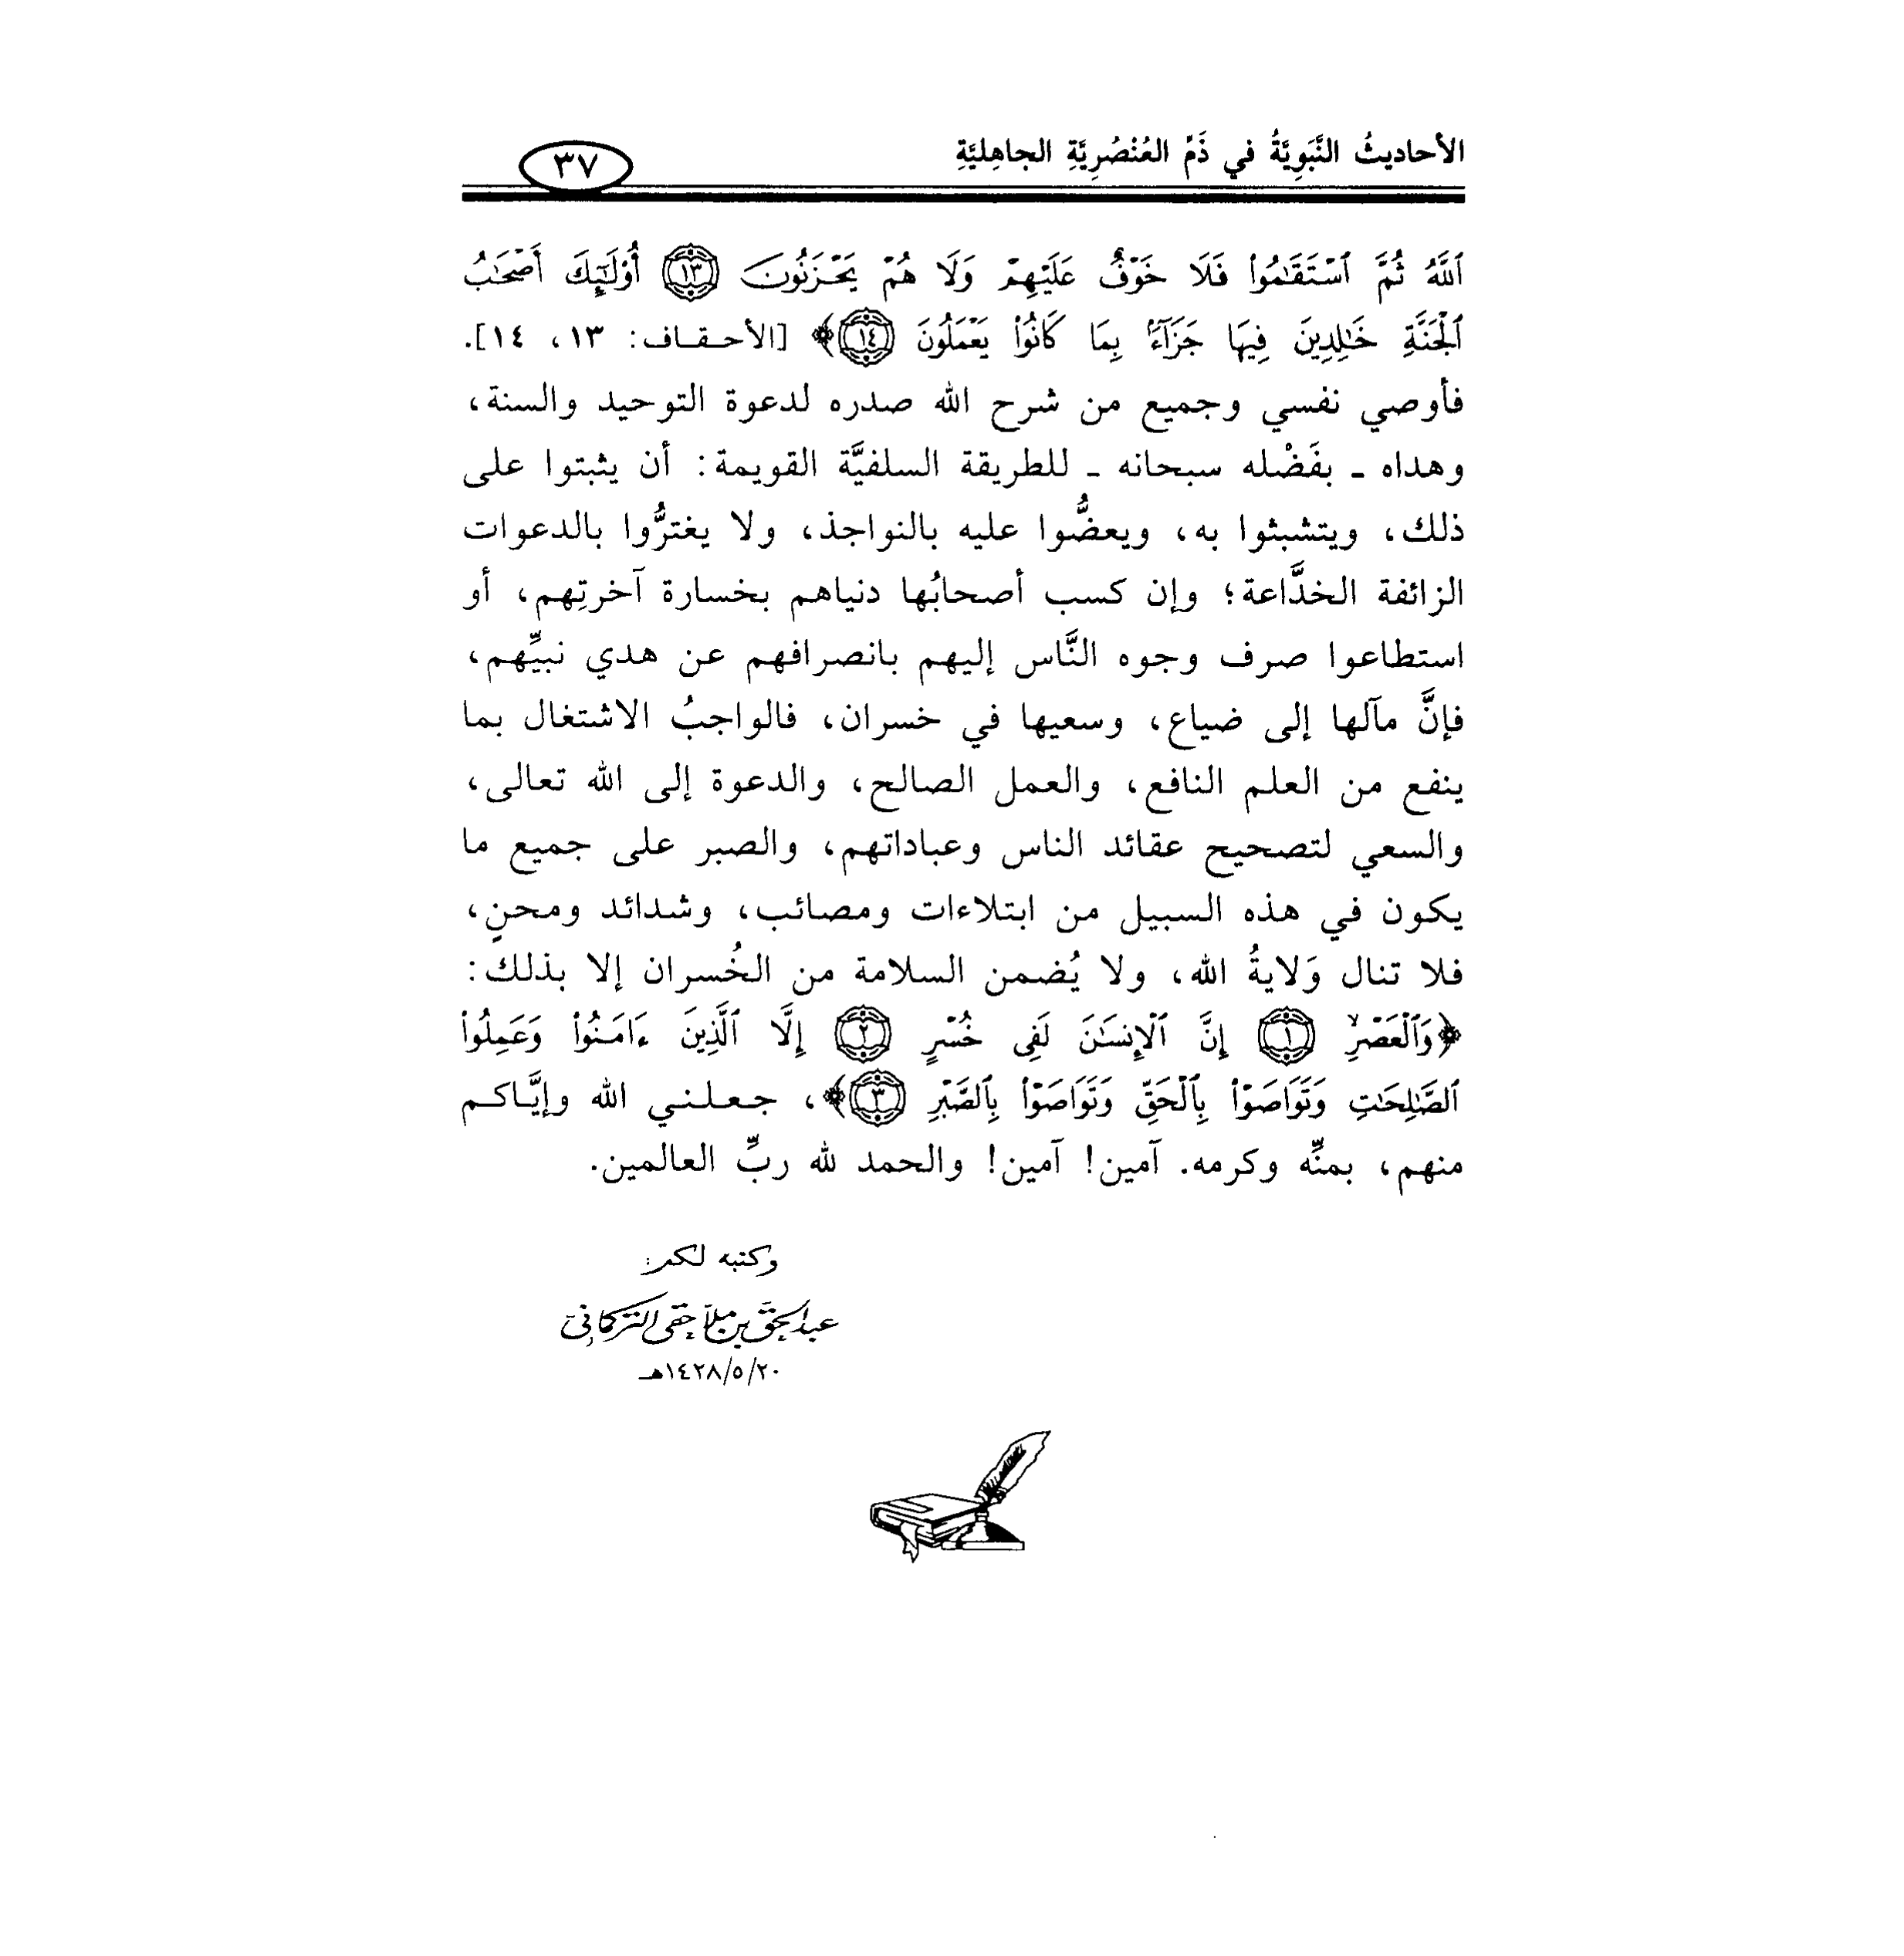 الأحاديثُ النَّبَوِيَّةُ في ذَمِّ العُنْصُرِيَّةِ الجاهِليَّةِ
٣٧
ٱللَّهُ ثُمَّ ٱسْتَقَٰمُوا۟ فَلَا خَوْفٌ عَلَيْهِمْ وَلَا هُمْ يَحْزَنُونَ ١٣ أُو۟لَٰٓئِكَ أَصْحَٰبُ
ٱلْجَنَّةِ خَٰلِدِينَ فِيهَا جَزَآءًۢ بِمَا كَانُوا۟ يَعْمَلُونَ ١٤﴾ [الأحـقـاف: ١٣، ١٤].
فأوصي نفسي وجميع من شرح الله صدره لدعوة التوحيد والسنة،
وهداه ـ بفَضْله سبحانه ـ للطريقة السلفيَّة القويمة: أن يثبتوا على
ذلك، ويتشبثوا به، ويعضُّوا عليه بالنواجذ، ولا يغترُّوا بالدعوات
الزائفة الخدَّاعة؛ وإن كسب أصحابُها دنياهم بخسارة آخرتِهم، أو
استطاعوا صرف وجوه النَّاس إليهم بانصرافهم عن هدي نبيِّهم،
فإنَّ مآلها إلى ضياع، وسعيها في خسران، فالواجبُ الاشتغال بما
ينفع من العلم النافع، والعمل الصالح، والدعوة إلى الله تعالى،
والسعي لتصحيح عقائد الناس وعباداتهم، والصبر على جميع ما
يكون في هذه السبيل من ابتلاءات ومصائب، وشدائد ومحنٍ،
فلا تنال وَلايةُ الله، ولا يُضمن السلامة من الخُسران إلا بذلك:
﴿وَٱلْعَصْرِ ١ إِنَّ ٱلْإِنسَٰنَ لَفِى خُسْرٍ ٢ إِلَّا ٱلَّذِينَ ءَامَنُوا۟ وَعَمِلُوا۟
ٱلصَّٰلِحَٰتِ وَتَوَاصَوْا۟ بِٱلْحَقِّ وَتَوَاصَوْا۟ بِٱلصَّبْرِ ٣﴾، جـعـلـنـي الله وإيَّـاكـم
منهم، بمنِّه وكرمه. آمين! آمين! والحمد لله ربِّ العالمين.
وكتبه لكم:
عبد الحق بن ملا حقي التركماني
١٤٢٨/٥/٢٠هـ